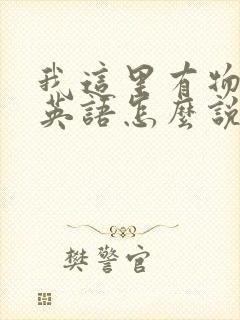 我這里有物
英語怎麼說
樊警官